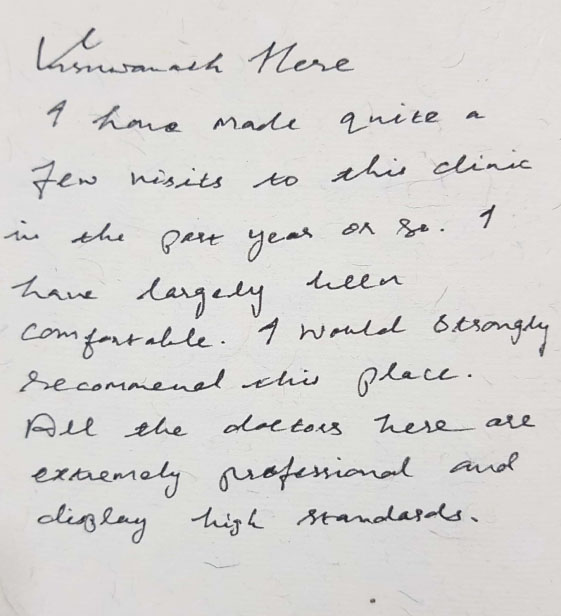 Viswanath Here
I have made quite a
few visits to this clinic
in the past year or so. I
have largely been
comfortable. I would strongly
recommend this place.
All the doctors here are
extremely professional and
display high standards.